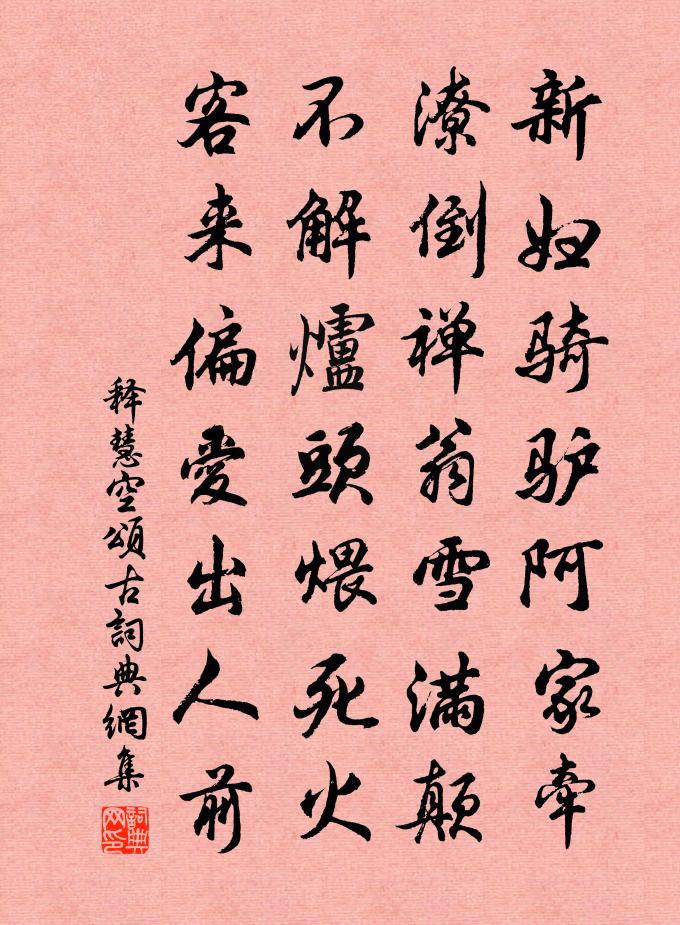 新妇骑驴阿家牵
潦倒禅翁雪满颠
不解爐頭煨死火
客来偏愛出人前
释慧空頌古詞典網集
詞典网印